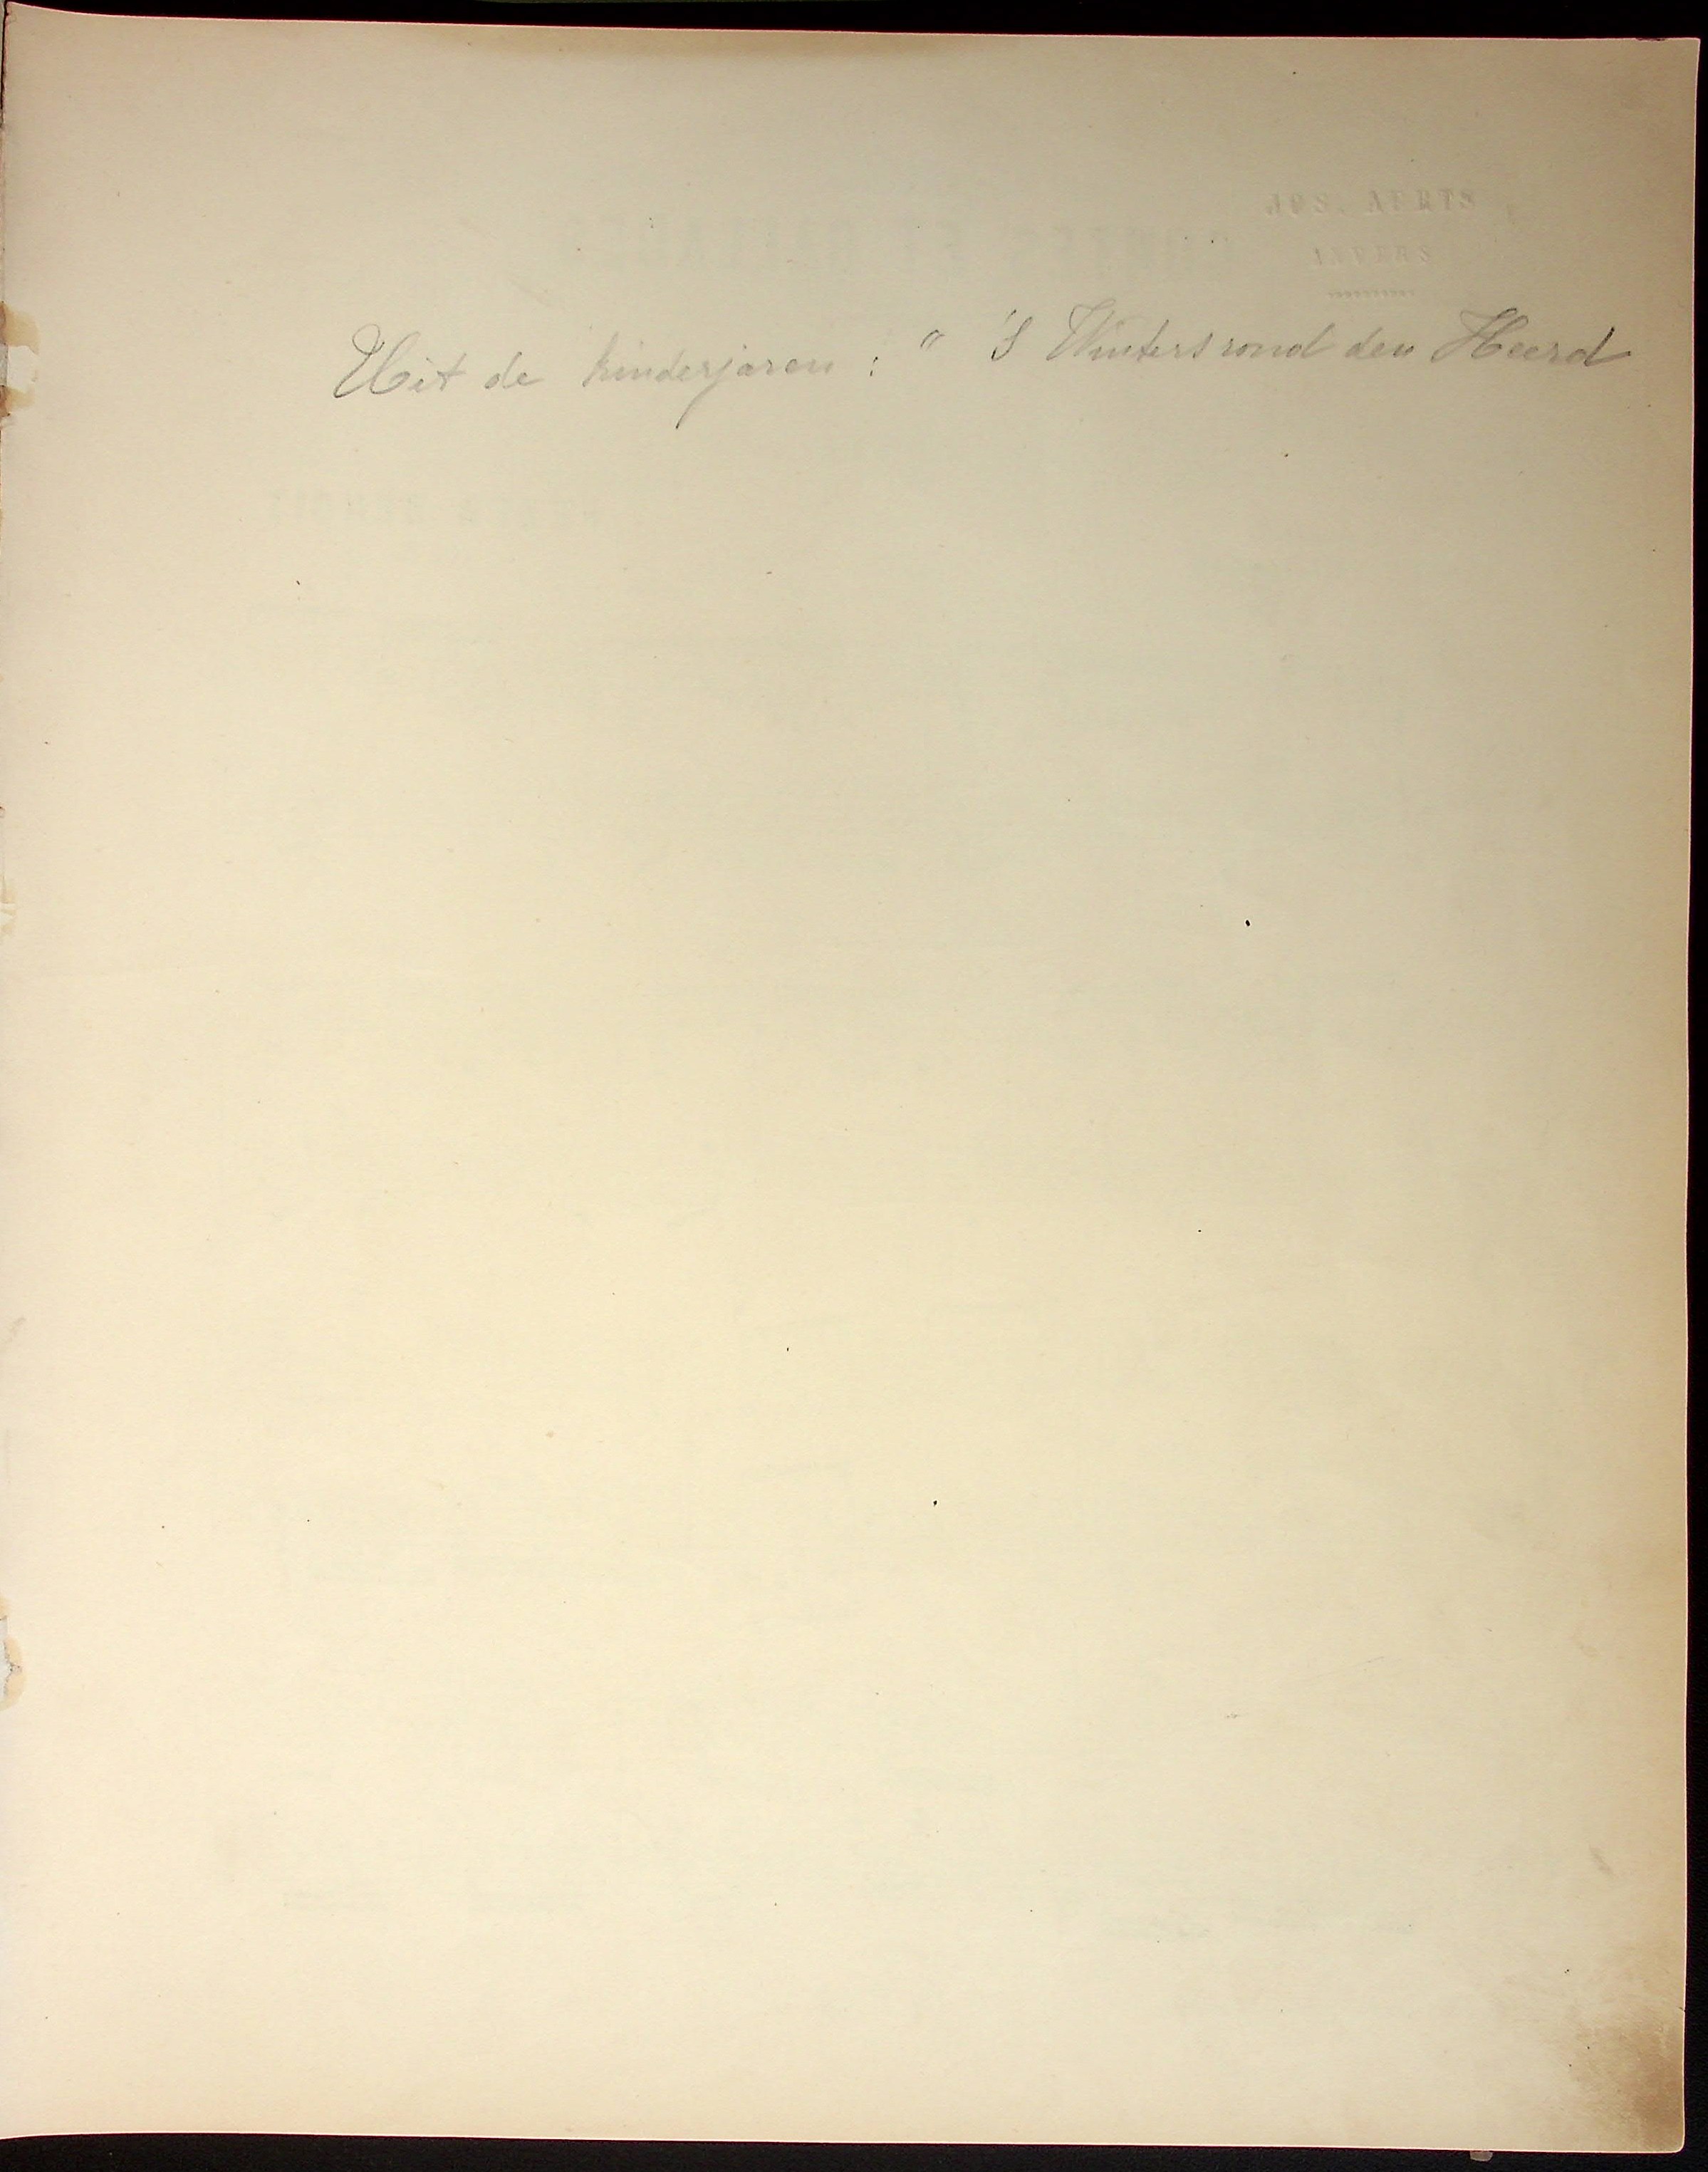 JOS. AERTS
ANVERS
Uit de kinderjaren : " 'S Winters rond den Heerd